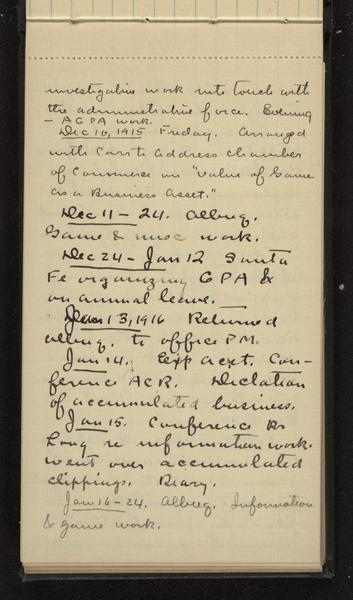 investigative work into touch with
the administrative force. Evening
- AGPA work.
Dec 10, 1915 Friday. Arranged
with Corsti address chamber
of Commerce on "Value of Game
as a Business Asset."
Dec 11 - 24. Albuq.
Game & misc work.
Dec 24 - Jan 12 Santa
Fe organizing GPA &
on annual leave.
Jan 13, 1916 Returned
Albuq. to office PM.
Jan 14. Exp acct. Con-
ference ACR. Dictation
of accumulated business.
Jan 15. Conference
Long re information work.
went over accumulated
clippings. Diary.
Jan 16 - 24. Albuq. Information
& game work.